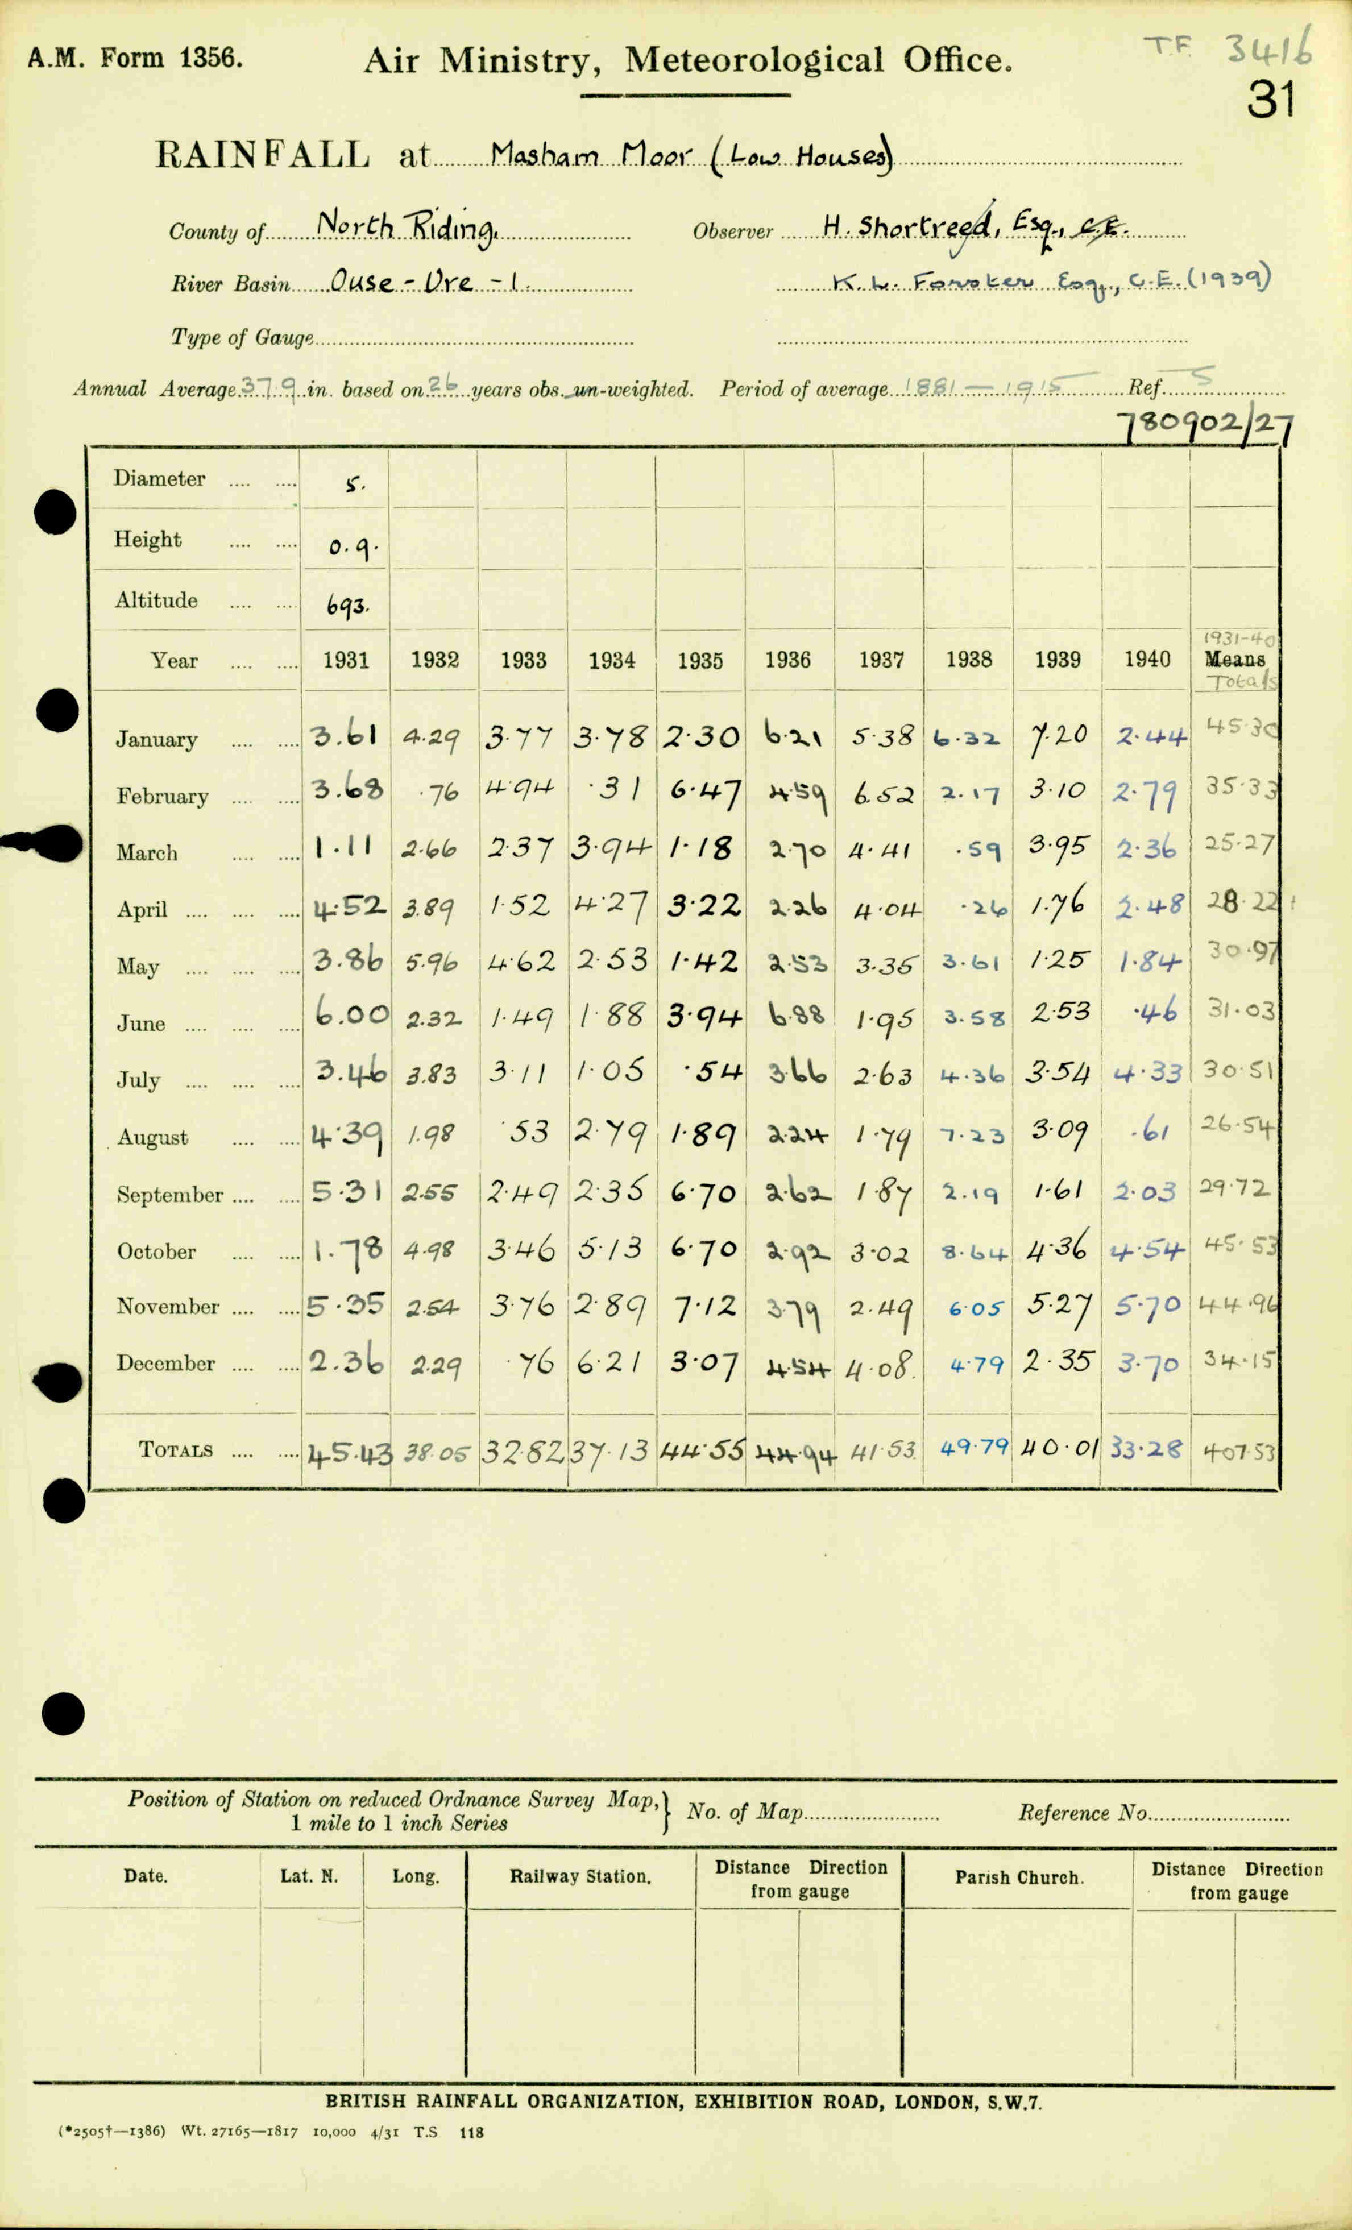 A.M. Form 1356.
Air Ministry, Meteorological Office.
T.F. 3416
31
RAINFALL at Masham Moor (Low Houses)
County of North Riding. Observer H. Shortreed, Esq., C.E.
River Basin Ouse - Ure - 1. K. L. Forster Esq., C.E. (1939)
Type of Gauge
Annual Average 37.9 in. based on 26 years obs. un-weighted. Period of average 1881 — 1915 Ref. 5
780902/27
Diameter 5.
Height 0.9.
Altitude 693.
1931-40
Year 1931 1932 1933 1934 1935 1936 1937 1938 1939 1940 Means
Totals
January 3.61 4.29 3.77 3.78 2.30 6.21 5.38 6.32 7.20 2.44 45.30
February 3.68 .76 4.94 .31 6.47 4.59 6.52 2.17 3.10 2.79 35.33
March 1.11 2.66 2.37 3.94 1.18 2.70 4.41 .59 3.95 2.36 25.27
April 4.52 3.89 1.52 4.27 3.22 2.26 4.04 .26 1.76 2.48 28.22
May 3.86 5.96 4.62 2.53 1.42 2.53 3.35 3.61 1.25 1.84 30.97
June 6.00 2.32 1.49 1.88 3.94 6.88 1.95 3.58 2.53 .46 31.03
July 3.46 3.83 3.11 1.05 .54 3.66 2.63 4.36 3.54 4.33 30.51
August 4.39 1.98 .53 2.79 1.89 2.24 1.79 7.23 3.09 .61 26.54
September 5.31 2.55 2.49 2.35 6.70 2.62 1.87 2.19 1.61 2.03 29.72
October 1.78 4.98 3.46 5.13 6.70 2.92 3.02 8.64 4.36 4.54 45.53
November 5.35 2.54 3.76 2.89 7.12 3.79 2.49 6.05 5.27 5.70 44.96
December 2.36 2.29 .76 6.21 3.07 4.54 4.08 4.79 2.35 3.70 34.15
TOTALS 45.43 38.05 32.82 37.13 44.55 44.94 41.53 49.79 40.01 33.28 407.53
Position of Station on reduced Ordnance Survey Map, } No. of Map Reference No.
1 mile to 1 inch Series
Date. Lat. N. Long. Railway Station. Distance Direction from gauge Parish Church. Distance Direction from gauge
BRITISH RAINFALL ORGANIZATION, EXHIBITION ROAD, LONDON, S.W.7.
(*2505†—1386) Wt. 27165—1817 10,000 4/31 T.S 118